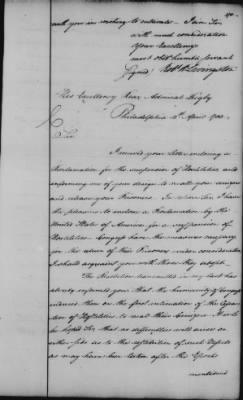 with you in wishing to cultivate. I am Sir
with much consideration
Your Excellency's
most obt humble servant
Signed / Robt R Livingston
His Excellency Rear Admiral Digby
Philadelphia 12th April 1783.
Sir
I received your letter enclosing a
Proclamation for the suspension of Hostilities and
informing me of your design to recall your cruizers
and release your Prisoners. In return Sir, I have
the pleasure to enclose a Proclamation by the
United States of America for a suspension of
Hostilities. Congress have the measures necessary
for the release of their Prisoners under consideration
I shall acquaint you with those they adopt.
The Resolution transmitted in my last has
already informed you that the humanity of Congress
induced them on the first intimation of the
of Hostilities to recall their Cruizers. It is to
be hoped Sir that no difficulties will arise on
either side as to the restitution of such Vessels
as may have been taken after the Epochs
mentioned